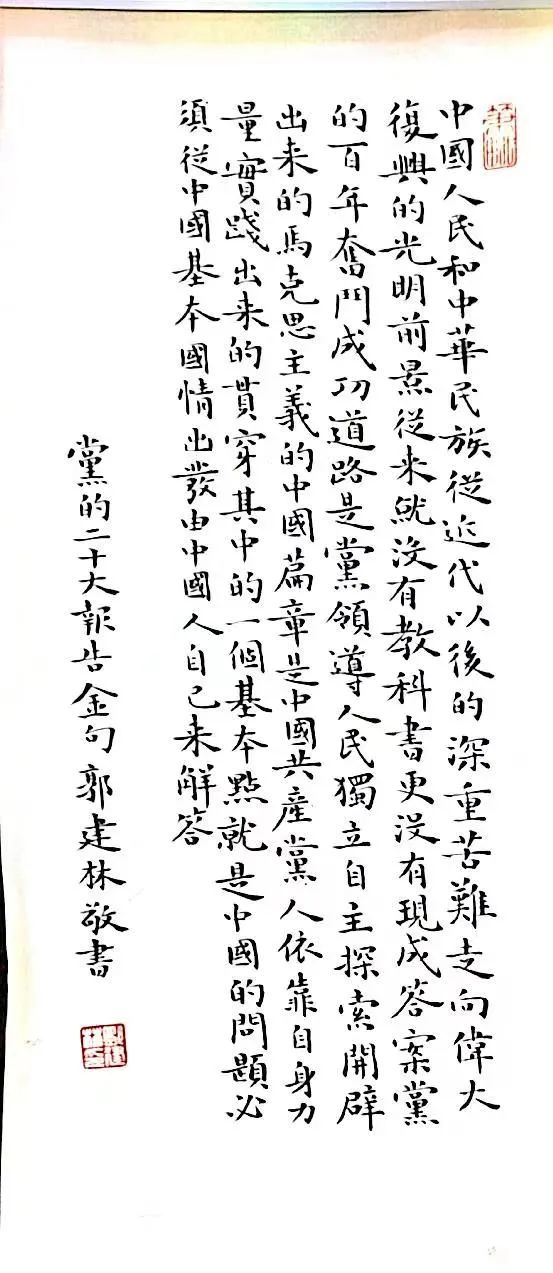 中國人民和中華民族從近代以後的深重苦難走向偉大
復興的光明前景從来就沒有教科書更沒有現成答案黨
的百年奮鬥成功道路是黨領導人民獨立自主探索開辟
出来的馬克思主義的中國篇章是中國共產黨人依靠自身力
量實踐出来的貫穿其中的一個基本點就是中國的問題必
須從中國基本國情出發由中國人自己来解答
黨的二十大報告金句郭建林敬書